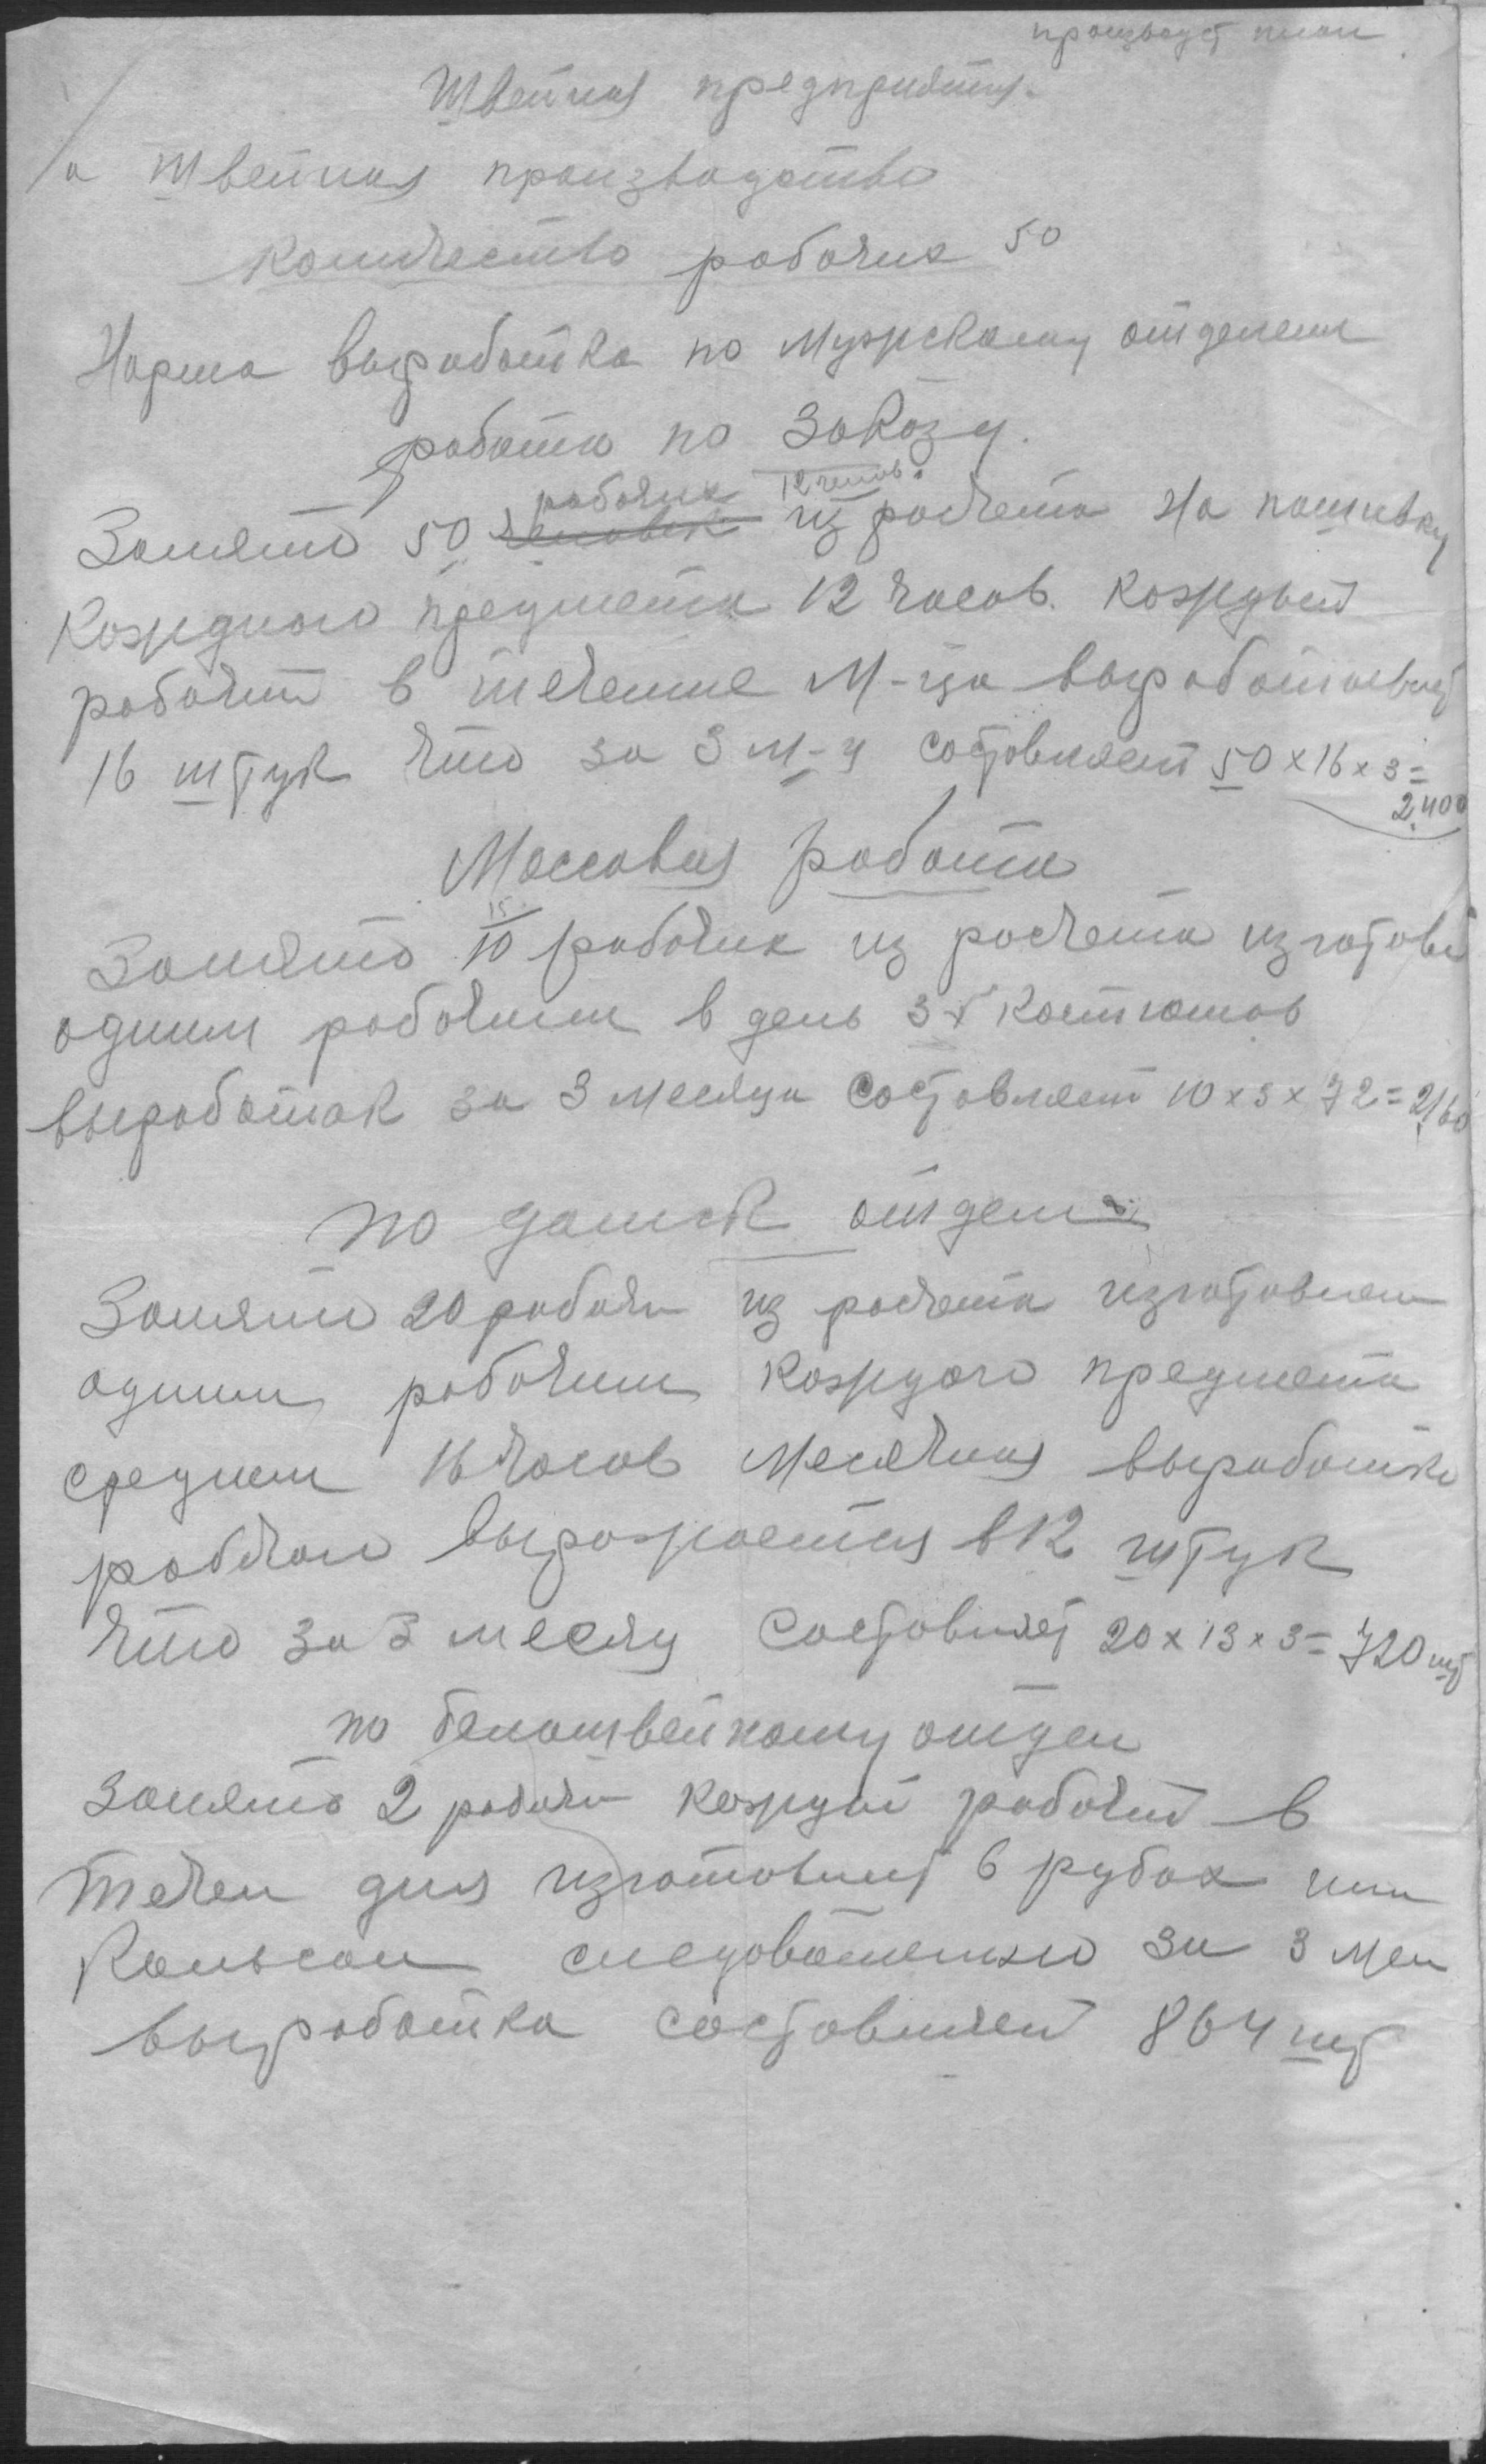 производ план
Швейная предприятия.
а швейная производство
Количество рабочих 50
Норма выработка по мужскому отделени
работа по заказу.
рабочих 12 часов.
Занято 50 человек из расчета на пошивку
каждного предмета 12 часов. каждый
рабочий в течение м-ца вырабатывает
16 штук что за 3 м-ц составляет 50 x 16 x 3 =
2.400
Массовая работа
15
Занято 10 рабочих из расчета изготов
одним рабочим в день 3 костюмов
выработак за 3 месяца составляет 10 x 3 x 72 = 2160
по дамск отдел
Занято 20 рабочи из расчета изготовлен
одним рабочим каждого предмета
среднем 16 часов месячная выработка
рабочаго выражается в 12 штук
что за 3 месяц составляет 20 x 13 x 3 = 720 шт
по белошвейному отдел
Занято 2 рабочи каждый рабочий в
течен дня изготовляет 6 рубах или
кальсон следовательно за 3 мец
выработка составляет 864 шт